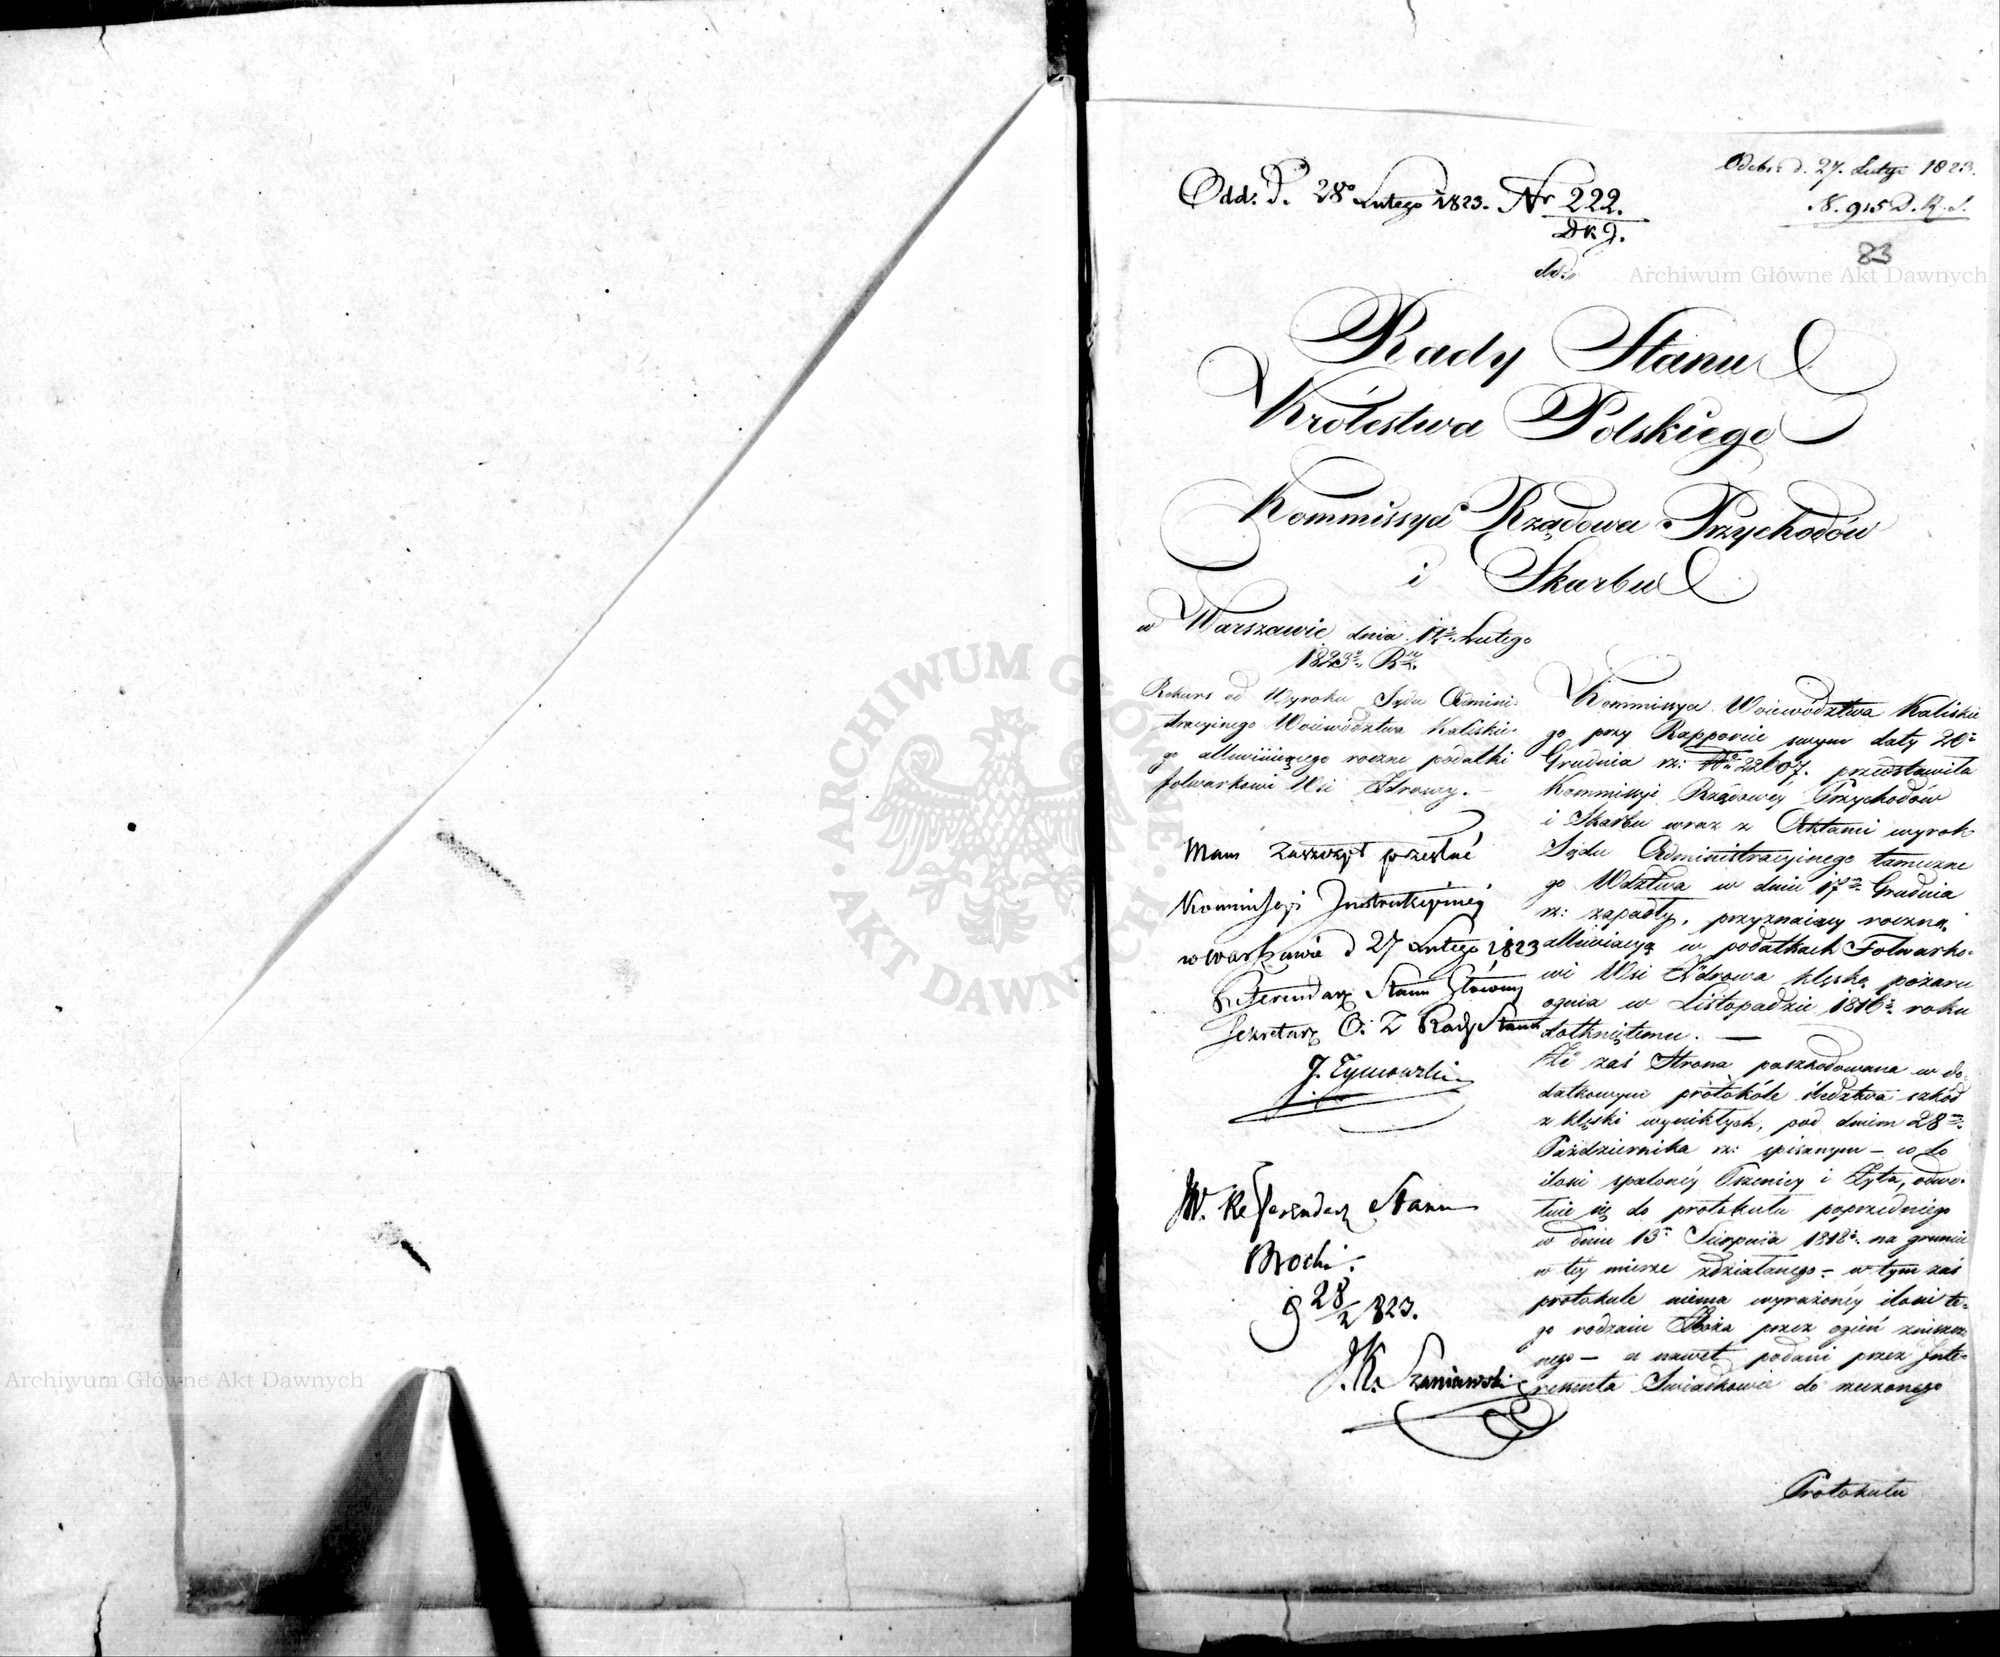 Odebr. d. 27. Lutego 1823.
N. 915 D. R. S.
Odd. D. 28º Lutego 1823. Nr 222.
DKJ.
83
do
Rady Stanu
Królestwa Polskiego
Kommissya Rządowa Przychodów
i Skarbu
w Warszawie dnia Lutego
1823º Rn.
Rekurs od Wyroku Sądu Admini-
stracyinego Woiewództwa Kaliskie-
go alleviuiącego roczne podatki
folwarkowi Wsi Zdrowy. –
Mam zaszczyt przesłać
Kommissyi Instrukcyiney
w Warszawie d 27 Lutego 1823
Referendarz Stanu Główny
Sekretarz O. Z Rady Stanu
J. Tymowski
JW. Referendarz Stanu
Brocki.
28/2 823.
J. K. Szaniawski
Kommissya Woiewództwa Kaliskie
go przy Rapporcie swym daty 20º
Grudnia rz: Nº 22607. przedstawiła
Kommissyi Rządowéy Przychodów
i Skarbu wraz z Aktami wyrok
Sądu Administracyinego tameczne
go Wdztwa w dniu 17m Grudnia
rz: zapadły, przyznaiący roczną
alleviacyą w podatkach Folwarko-
wi Wsi Zdrowa klęską pożaru
ognia w Listopadzie 1816º roku
dotkniętemu. —
Że zaś Strona poszkodowana w do-
datkowym protokóle śledztwa szkód
z klęski wynikłych, pod dniem 28m
Października rz: spisanym – co do
ilości spalonéy Pszenicy i Żyta, odwo-
łuie się do protokułu poprzedniego
w dniu 13º Sierpnia 1818º na gruncie
w téy mierze zdziałanego – w tym zaś
protokule niema wyrażonéy ilości te-
go rodzaiu Zboża przez ogień zniszczo
nego – a nawet podani przez Inte-
ressenta Swiadkowie do rzeczonego
Protokułu
Archiwum Główne Akt Dawnych
Archiwum Główne Akt Dawnych
ARCHIWUM GŁÓWNE AKT DAWNYCH